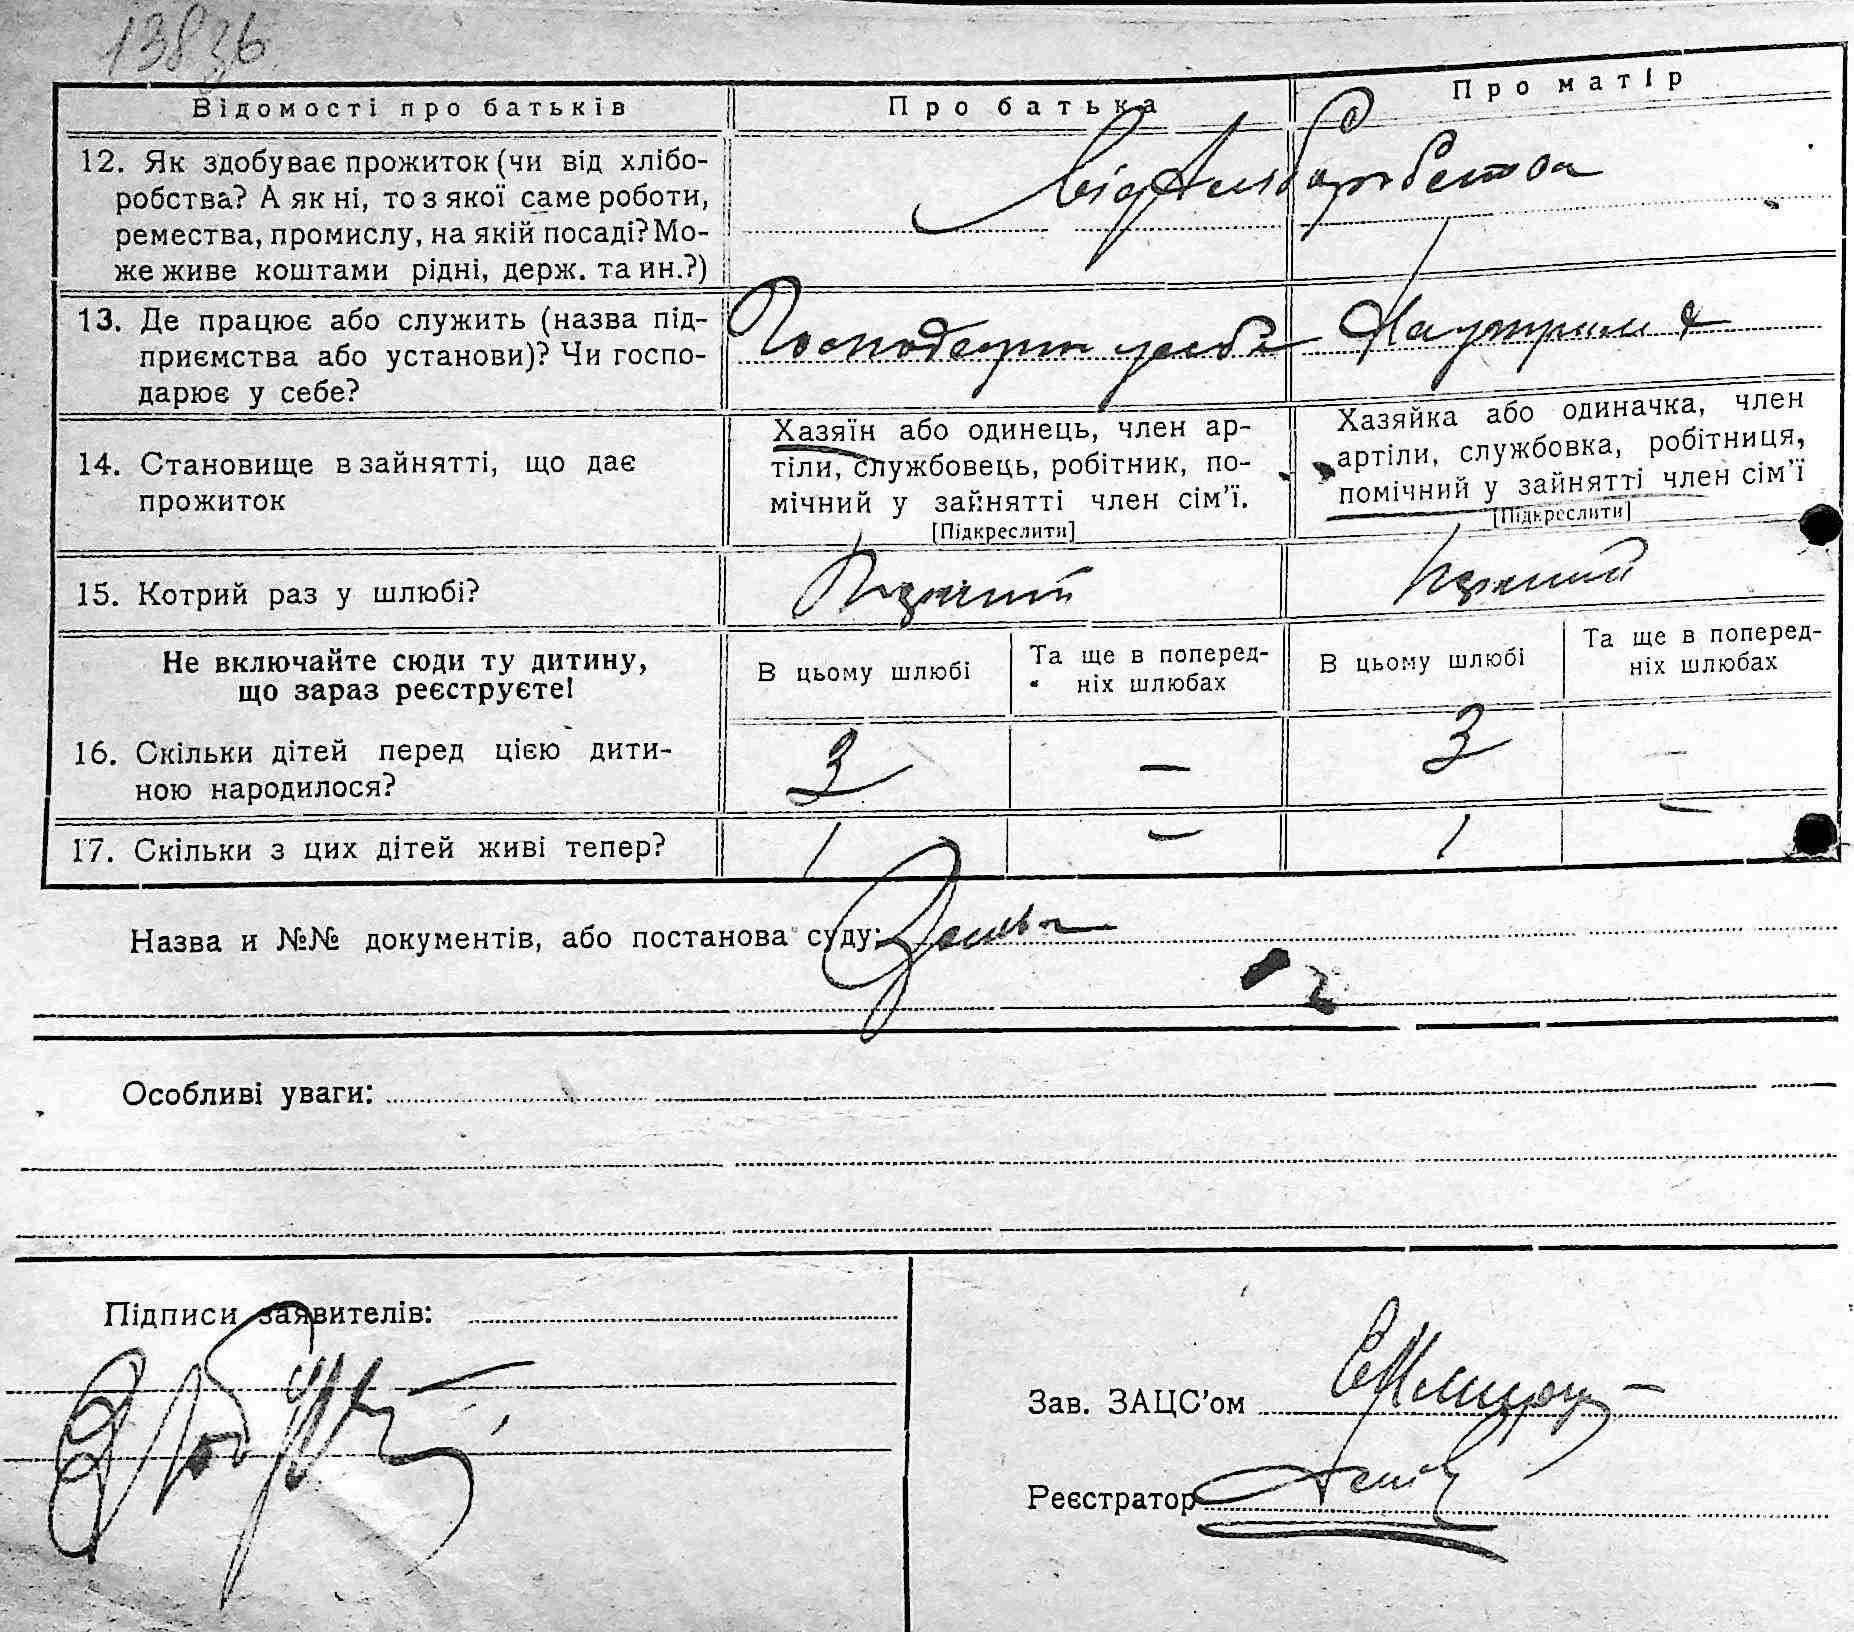 138зб
Відомості про батьків
Про батька
Про матір
12. Як здобуває прожиток (чи від хлібо-
робства? А як ні, то з якої саме роботи,
ремества, промислу, на якій посаді? Мо-
же живе коштами рідні, держ. та ин.?)
Від хліборобства
13. Де працює або служить (назва під-
приємства або установи)? Чи госпо-
дарює у себе?
Господарює у себе
На утрим.
14. Становище в зайнятті, що дає
прожиток
Хазяїн або одинець, член ар-
тіли, службовець, робітник, по-
мічний у зайнятті член сім’ї.
[Підкреслити]
Хазяйка або одиначка, член
артіли, службовка, робітниця,
помічний у зайнятті член сім’ї
[Підкреслити]
15. Котрий раз у шлюбі?
Перший
Перший
Не включайте сюди ту дитину,
що зараз реєструєте!
В цьому шлюбі
Та ще в поперед-
ніх шлюбах
В цьому шлюбі
Та ще в поперед-
ніх шлюбах
16. Скільки дітей перед цією дити-
ною народилося?
3 — 3 —
17. Скільки з цих дітей живі тепер?
1 — 1 —
Назва и №№ документів, або постанова суду:
Особливі уваги:
Підписи заявителів:
Зав. ЗАЦС’ом
Реєстратор